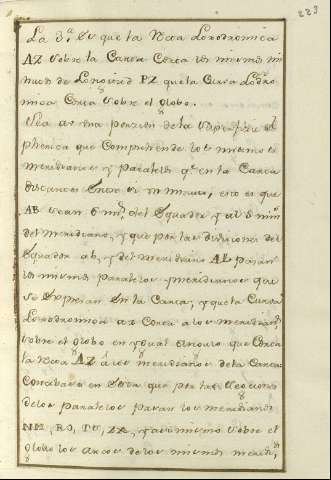 223
La 3.ª Es que la Recta Loxodromica
AZ sobre la Carta Corta los mismos mi
nutos de Longitud PZ que la Curva Loxdro
mica Corta sobre el globo.
Sea az una porcion de la Superficie es
pherica que Comprehende los mismos
meridianos y paralelos q.e en la Carta
distantes entre si un minuto, esto es que
AB sean 6 min.s del Equador y al 5 min.s
del meridiano, y que por las divisiones del
Equador ab, y del meridiano AL pasan
los mismos paralelos y meridianos que
se Expresan en la Carta, y que la Curva
Loxodromica az Corta a los meridian.s
sobre el globo en ygual angulo que Corta
la Recta AZ á los meridianos de la Carta
Concibase en Esta que por las Secciones
de los paralelos pasan los meridianos
NM, RO, TV, ZX, y asimismo sobre el
globo los arcos de los mismos meridi,